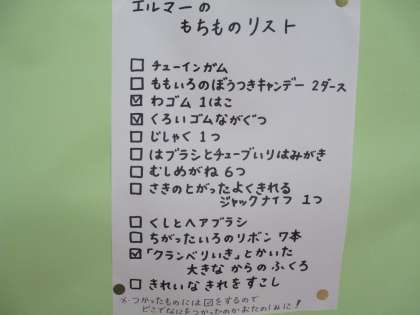 エルマーの
もちものリスト
□ チューインガム
□ ももいろのぼうつきキャンデー 2ダース
☑ わゴム 1はこ
☑ くろいゴムながぐつ
□ じしゃく 1つ
□ はブラシとチューブいりはみがき
□ むしめがね 6つ
□ さきのとがったよくきれる
ジャックナイフ 1つ
□ くしとヘアブラシ
□ ちがったいろのリボン 7本
☑ 「クランベリいき」とかいた
大きな からの ふくろ
□ きれいな きれを すこし
※つかったものには☑をするので
どこでなにをつかったのかおたのしみに!